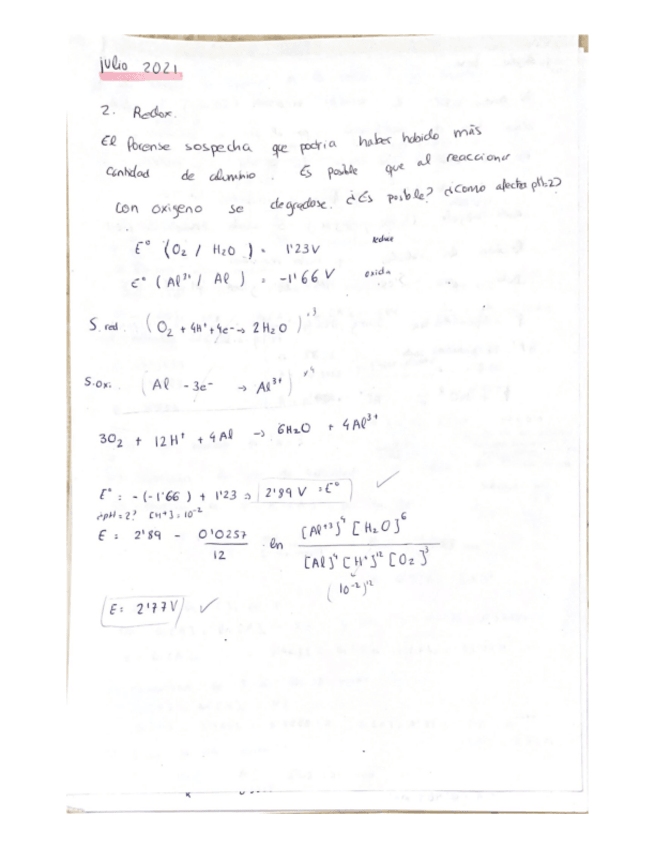 julio 2021
2. Redox.
El forense sospecha que podria haber habido más
cantidad de aluminio. Es posible que al reaccionar
con oxigeno se degradase. ¿Es posible? ¿Como afecta pH=2?
E° (O2 / H2O) = 1'23V reduce
E° (Al3+ / Al) = -1'66 V oxida
S. red. (O2 + 4H+ + 4e- → 2H2O) x3
S.ox. (Al - 3e- → Al3+) x4
3O2 + 12H+ + 4Al → 6H2O + 4Al3+
E° = -(-1'66) + 1'23 = 2'89 V = E°
¿pH=2? [H+] = 10^-2
E = 2'89 - 0'0257/12 · ln [Al+3]^4 [H2O]^6 / [Al]^4 [H+]^12 [O2]^3
(10^-2)^12
E = 2'77V